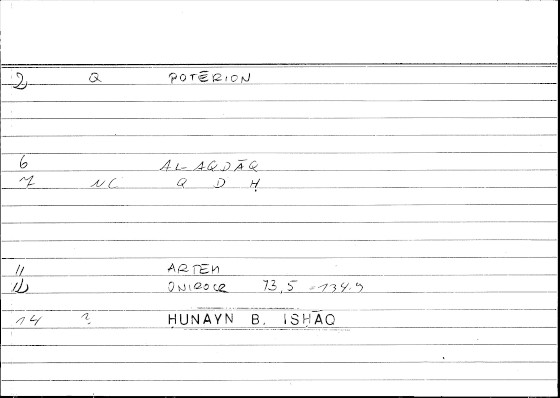 2 Q POTĒRION
6 AL AQDĀQ
7 NC Q D Ḥ
11 ARTEM
12 ONIROCR 73,5 = 134.9
14 ? ḤUNAYN B. ISḤĀQ